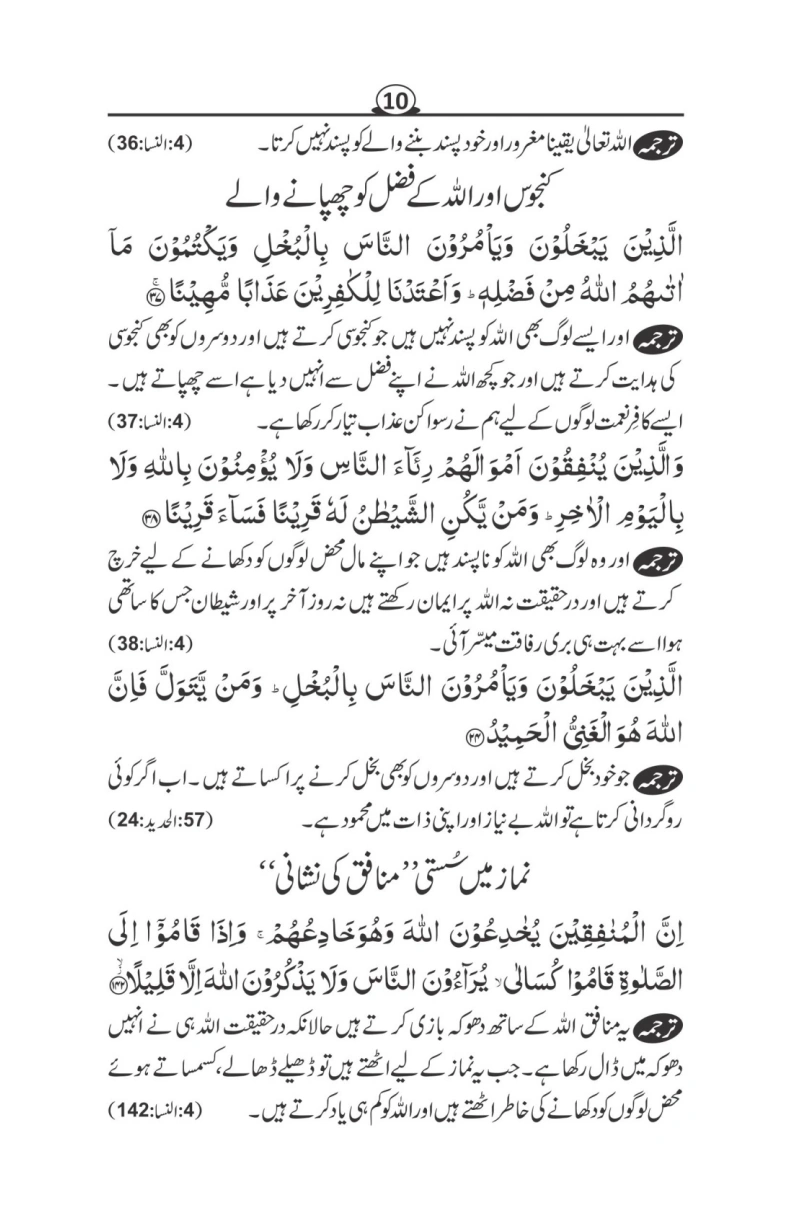 10
ترجمہ اللہ تعالیٰ یقینا مغرور اور خود پسند بننے والے کو پسند نہیں کرتا۔ (4:النسا:36)
کنجوس اور اللہ کے فضل کو چھپانے والے
الَّذِیْنَ یَبْخَلُوْنَ وَیَاْمُرُوْنَ النَّاسَ بِالْبُخْلِ وَیَکْتُمُوْنَ مَاۤ
اٰتٰىهُمُ اللهُ مِنْ فَضْلِهٖ ؕ وَاَعْتَدْنَا لِلْکٰفِرِیْنَ عَذَابًا مُّهِیْنًا ۚ۝۳۷
ترجمہ اور ایسے لوگ بھی اللہ کو پسند نہیں ہیں جو کنجوسی کرتے ہیں اور دوسروں کو بھی کنجوسی
کی ہدایت کرتے ہیں اور جو کچھ اللہ نے اپنے فضل سے انہیں دیا ہے اسے چھپاتے ہیں۔
ایسے کافِر نعمت لوگوں کے لیے ہم نے رسوا کن عذاب تیار کر رکھا ہے۔ (4:النسا:37)
وَالَّذِیْنَ یُنْفِقُوْنَ اَمْوَالَهُمْ رِئَآءَ النَّاسِ وَلَا یُؤْمِنُوْنَ بِاللهِ وَلَا
بِالْیَوْمِ الْاٰخِرِ ؕ وَمَنْ یَّکُنِ الشَّیْطٰنُ لَهٗ قَرِیْنًا فَسَآءَ قَرِیْنًا ۝۳۸
ترجمہ اور وہ لوگ بھی اللہ کو ناپسند ہیں جو اپنے مال محض لوگوں کو دکھانے کے لیے خرچ
کرتے ہیں اور درحقیقت نہ اللہ پر ایمان رکھتے ہیں نہ روز آخر پر اور شیطان جس کا ساتھی
ہوا اسے بہت ہی بری رفاقت میسّر آئی۔ (4:النسا:38)
الَّذِیْنَ یَبْخَلُوْنَ وَیَاْمُرُوْنَ النَّاسَ بِالْبُخْلِ ؕ وَمَنْ یَّتَوَلَّ فَاِنَّ
اللهَ هُوَ الْغَنِیُّ الْحَمِیْدُ ۝۲۴
ترجمہ جو خود بخل کرتے ہیں اور دوسروں کو بھی بخل کرنے پر اکساتے ہیں۔ اب اگر کوئی
روگردانی کرتا ہے تو اللہ بے نیاز اور اپنی ذات میں محمود ہے۔ (57:الحدید:24)
نماز میں سُستی ’’منافق کی نشانی‘‘
اِنَّ الْمُنٰفِقِیْنَ یُخٰدِعُوْنَ اللهَ وَهُوَ خَادِعُهُمْ ۚ وَاِذَا قَامُوْۤا اِلَی
الصَّلٰوةِ قَامُوْا کُسَالٰی ۙ یُرَآءُوْنَ النَّاسَ وَلَا یَذْکُرُوْنَ اللهَ اِلَّا قَلِیْلًا ۝۱۴۲
ترجمہ یہ منافق اللہ کے ساتھ دھوکہ بازی کرتے ہیں حالانکہ درحقیقت اللہ ہی نے انہیں
دھوکہ میں ڈال رکھا ہے۔ جب یہ نماز کے لیے اٹھتے ہیں تو ڈھیلے ڈھالے، کسمساتے ہوئے
محض لوگوں کو دکھانے کی خاطر اٹھتے ہیں اور اللہ کو کم ہی یاد کرتے ہیں۔ (4:النسا:142)